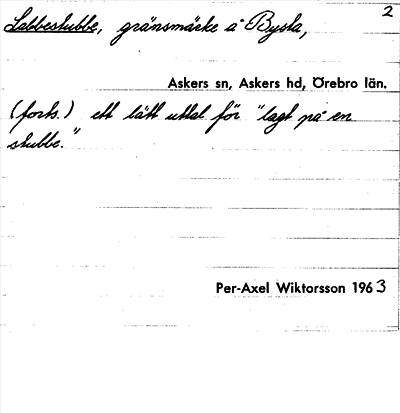 2
Labbestubbe, gränsmärke å Bysta,
Askers sn, Askers hd, Örebro län.
(forts.) ett lätt uttal för "lagt på en
stubbe."
Per-Axel Wiktorsson 1963